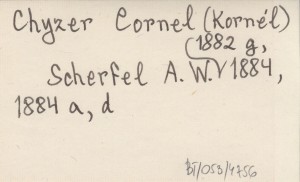 Chyzer Cornel (Kornél)
(1882 g,
Scherfel A. W. 1884,
1884 a, d
BT/053/4756